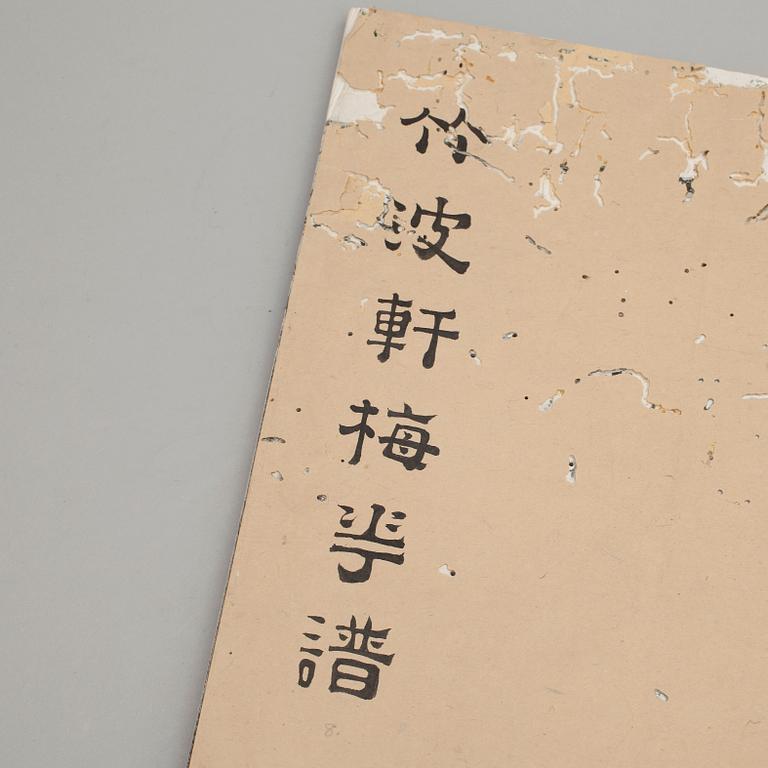 竹波軒梅𠌶譜
8.